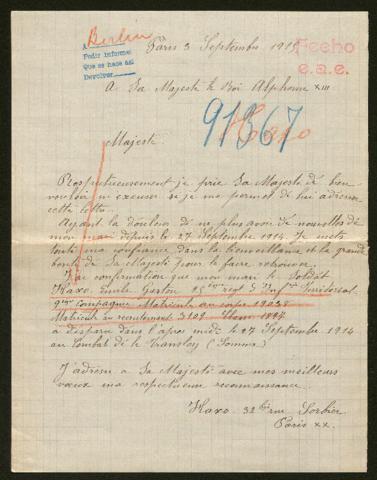 Berlin
A
Pedir informes
Que se hace así
Devolver
Paris 3 Septembre 191
Fecho
e.a.e.
A Sa Majesté le Roi Alphonse XIII.
91367
Haxo
Majesté
Respectueusement je prie Sa Majesté de bien
vouloir m'excuser si je me permet de lui adresser
cette lettre.
Ayant la douleur de ne plus avoir de nouvelles de
mon mari depuis le 27 Septembre 1914 je mets
toute ma confiance dans la bienveillance et la grande
bonté de Sa Majesté pour le faire retrouver.
J'ai confirmation que mon mari le Soldat
Haxo Emile Gaston 25 regt d'Inf Territorial
9 Compagnie Matricule au corps
Matricule au recrutement 3109
a disparu dans l'après midi le 27 Septembre 1914
au Combat de le Transloy (Somme)
J'adresse à Sa Majesté avec mes meilleurs
vœux ma respectueuse reconnaissance.
Haxo 32 rue Sorbier
Paris XX.